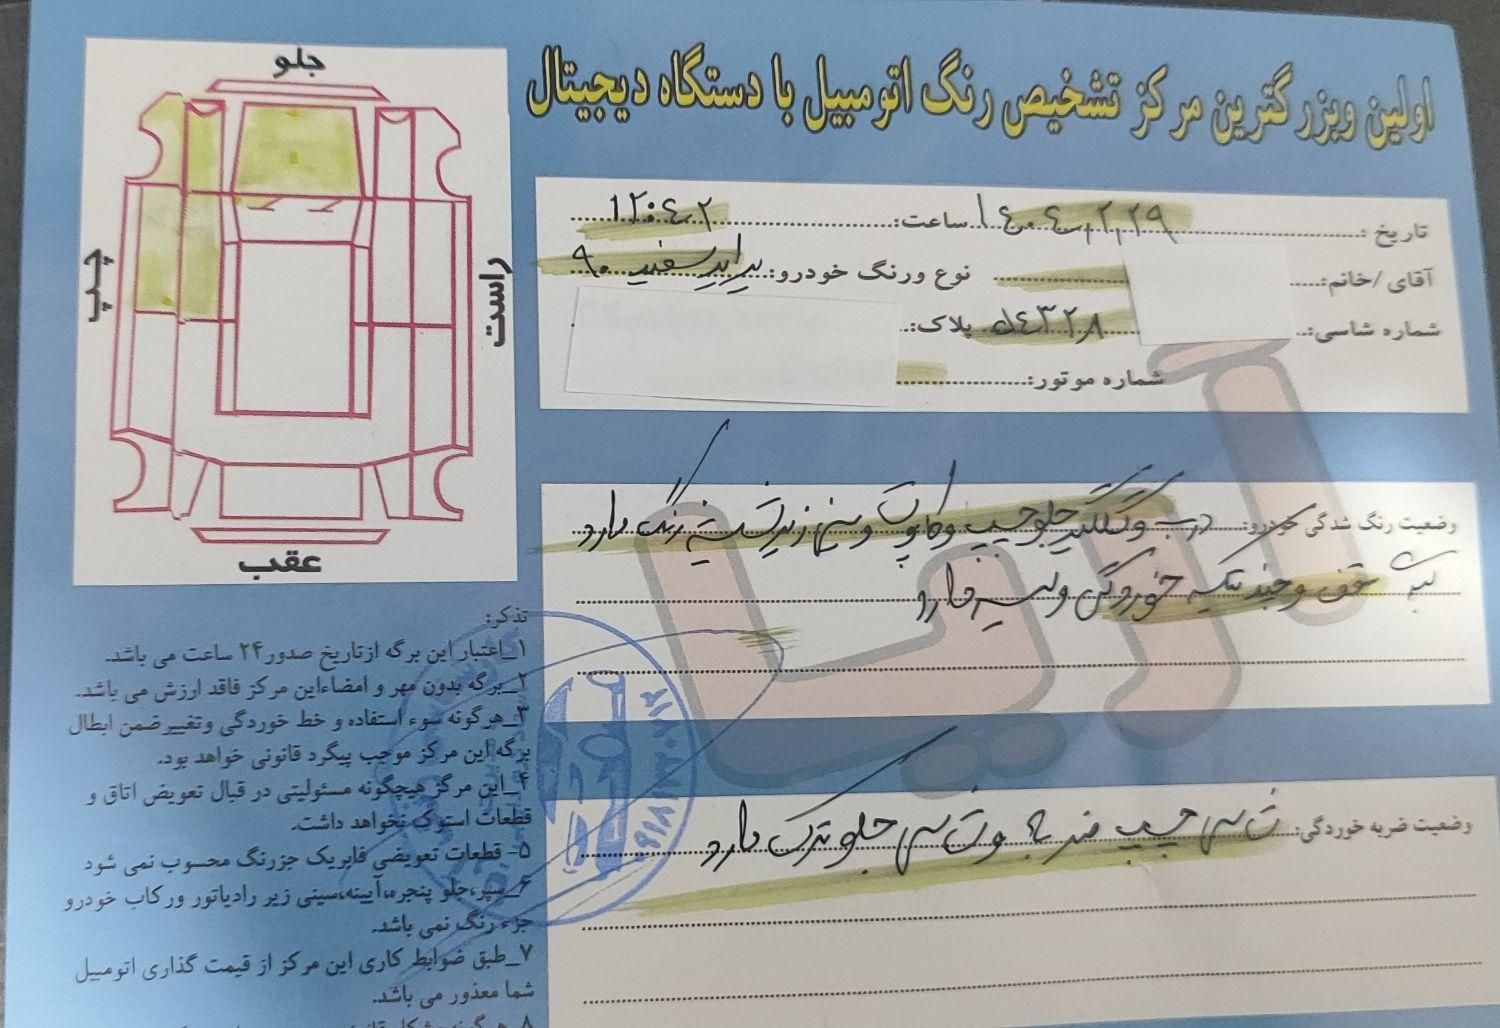 اولین وبزرگترین مرکز تشخیص رنگ اتومبیل با دستگاه دیجیتال
جلو
چپ
راست
عقب
تاریخ: ۱۴۰۴,۲,۲۹ ساعت:
آقای /خانم: نوع ورنگ خودرو: پراید سفید ۹۰
شماره شاسی: پلاک:
شماره موتور:
وضعیت رنگ شدگی خودرو: درب و گلگیر جلو چپ و کاپوت و رنگ دارد
سقف و چند تکه خوردگی و لیسه دارد
وضعیت ضربه خوردگی: شاسی چپ ضربه و شاسی جلو ترک دارد
آریا
تذکر:
۱_اعتبار این برگه ازتاریخ صدور۲۴ ساعت می باشد.
۲_برگه بدون مهر و امضاءاین مرکز فاقد ارزش می باشد.
۳_هرگونه سوء استفاده و خط خوردگی وتغییرضمن ابطال
برگه این مرکز موجب پیگرد قانونی خواهد بود.
۴_این مرکز هیچگونه مسئولیتی در قبال تعویض اتاق و
قطعات استوک نخواهد داشت.
۵- قطعات تعویضی فابریک جزرنگ محسوب نمی شود
۶_سپر،جلو پنجره،آیینه،سینی زیر رادیاتور ورکاب خودرو
جزء رنگ نمی باشد.
۷_طبق ضوابط کاری این مرکز از قیمت گذاری اتومبیل
شما معذور می باشد.